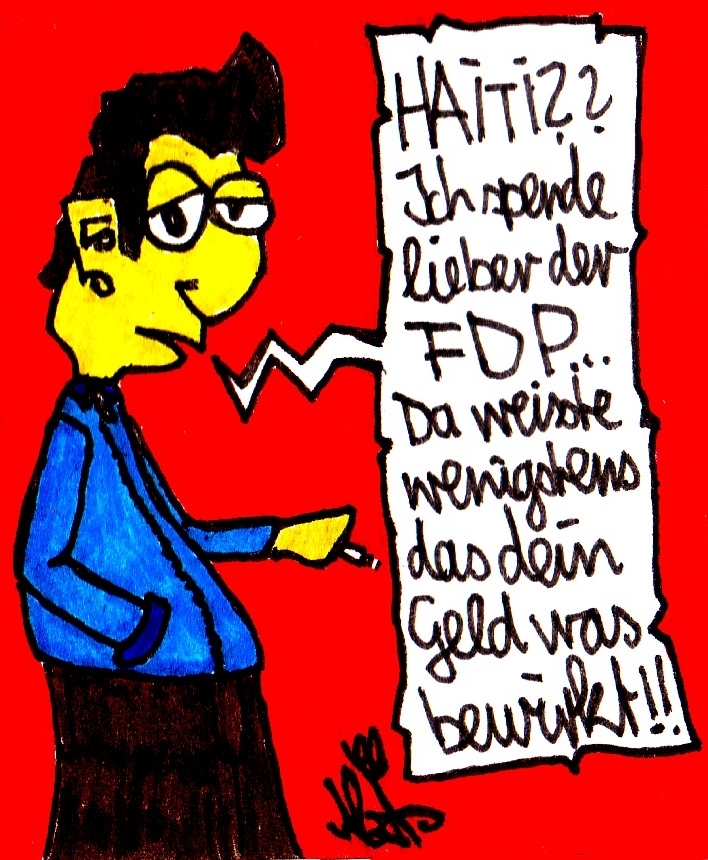 HAÏTI??
Ich spende
lieber der
FDP...
Da weisste
wenigstens
das dein
Geld was
bewirkt!!